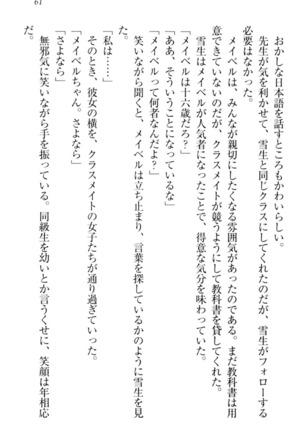 61
おかしな日本語を話すところもかわいらしい。
先生が気を利かせて、雪生と同じクラスにしてくれたのだが、雪生がフォローする
必要はなかった。
メイベルは、みんなが親切にしたくなる雰囲気があったのだ。まだ教科書は用
意できていないのだが、クラスメイトが競うようにして教科書を貸してくれた。
雪生はメイベルが人気者になったことで、得意な気分を味わっていた。
「メイベルは十六歳だろ？」
「ああ、そういうことになっているな」
「メイベルって何者なんだよ？」
笑いながら聞くと、メイベルは立ち止まり、言葉を探しているかのように雪生を見
た。
「私は……」
そのとき、彼女の横を、クラスメイトの女子たちが通り過ぎていった。
「メイベルちゃん。さよなら」
「さよなら」
無邪気に笑いながら手を振っている。同級生を幼いとか言うくせに、笑顔は年相応
だ。